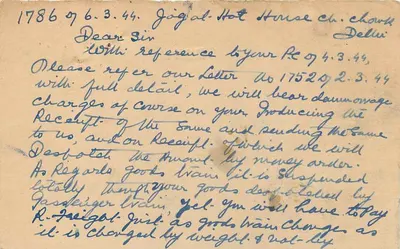 1786 of 6.3.44. Jagat Hot House Ch. chowk
Delhi
Dear Sir
With reference to your P.C of 4.3.44,
Please refer our Letter No 1752 of 2.3.44
with full detail, we will bear
charges of course on your Producing the
Receipt of the Same and sending the Same
to us, and on Receipt of which we will
Despatch the Amount by money order.
As Regards goods train it is suspended
totally though your goods despatched by
Passenger train, yet you will have to Pay
R. Freight Just as goods train Charges as
it is charged by weight & not by